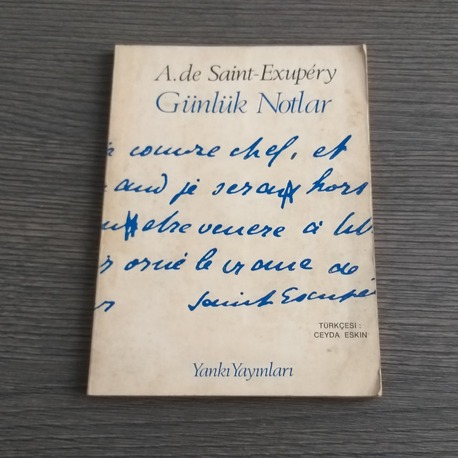 A. de Saint-Exupéry
Günlük Notlar
comme chef, et
and je serai hors
etre venere à
orné le crane de
Saint Exupé
TÜRKÇESİ :
CEYDA ESKİN
Yankı Yayınları